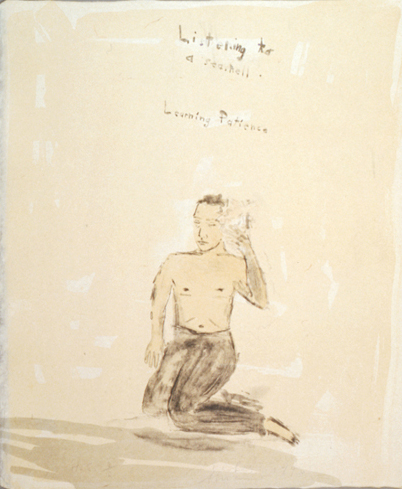 Listening to
a seashell.
Learning Patience